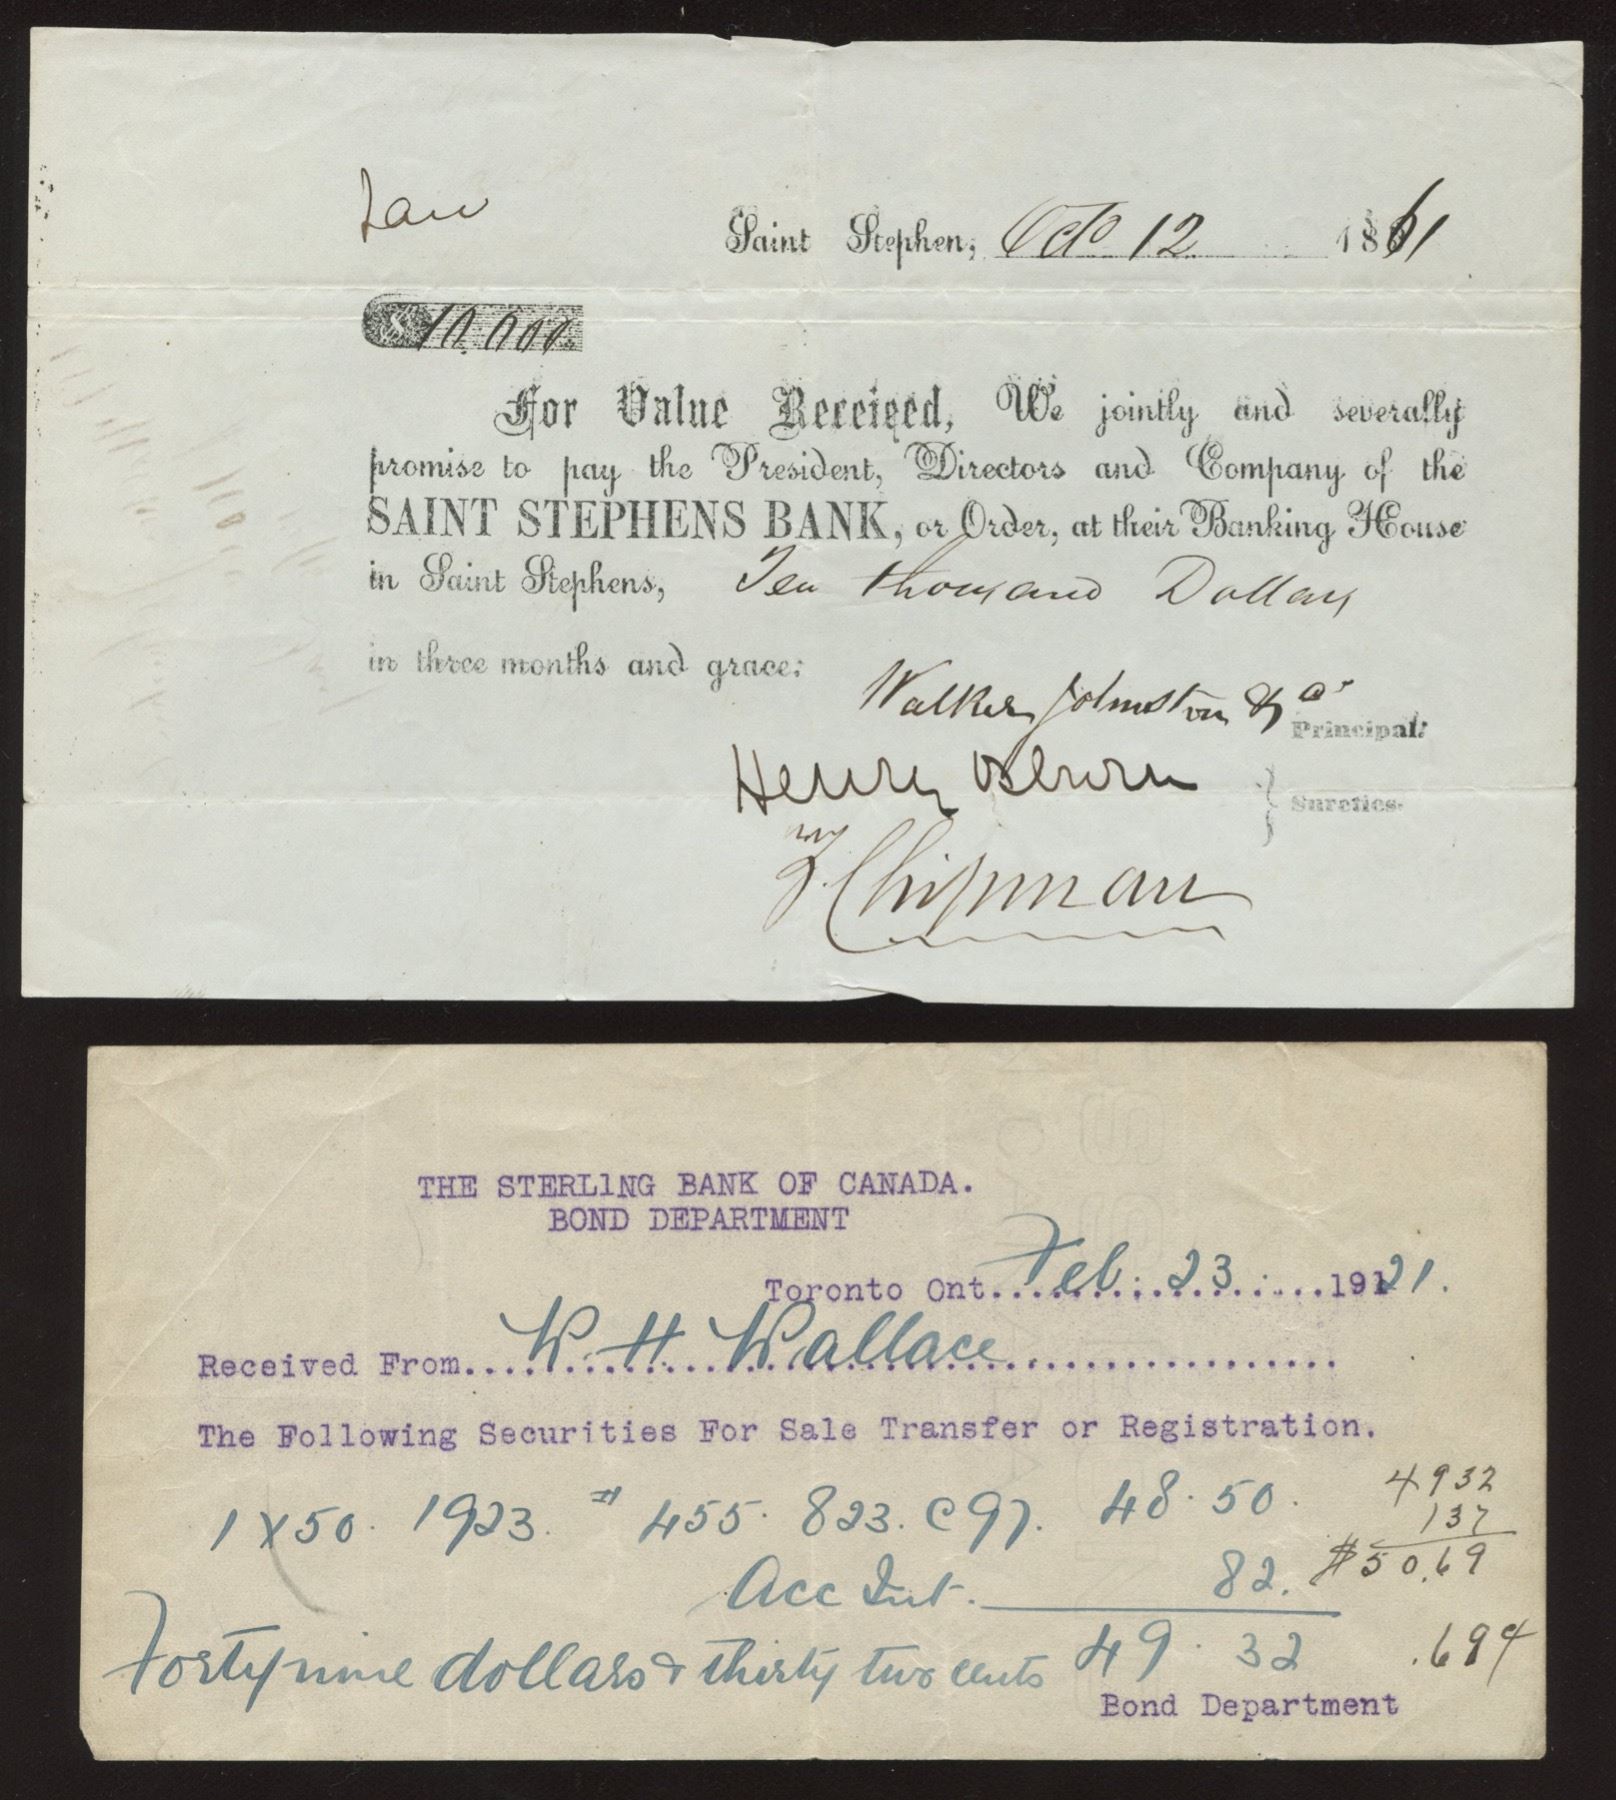 Jan
Saint Stephen, Octo 12 1861
$10,000.
For Value Received, We jointly and severally
promise to pay the President, Directors and Company of the
SAINT STEPHENS BANK, or Order, at their Banking House
in Saint Stephens, Ten thousand Dollars
in three months and grace:
Walker Johnston & Co
Principal.
Henry
Sureties.
Z. Chipman
THE STERL1NG BANK OF CANADA.
BOND DEPARTMENT
Toronto Ont....Feb. 23......19121.
Received From....W. H. Wallace..............
The Following Securities For Sale Transfer or Registration.
4932
1 X 50. 1923. # 455. 823. @ 97. 48.50.
137
Acc Int. 82. $50.69
Forty nine dollars & thirty two cents 49.32 .694
Bond Department